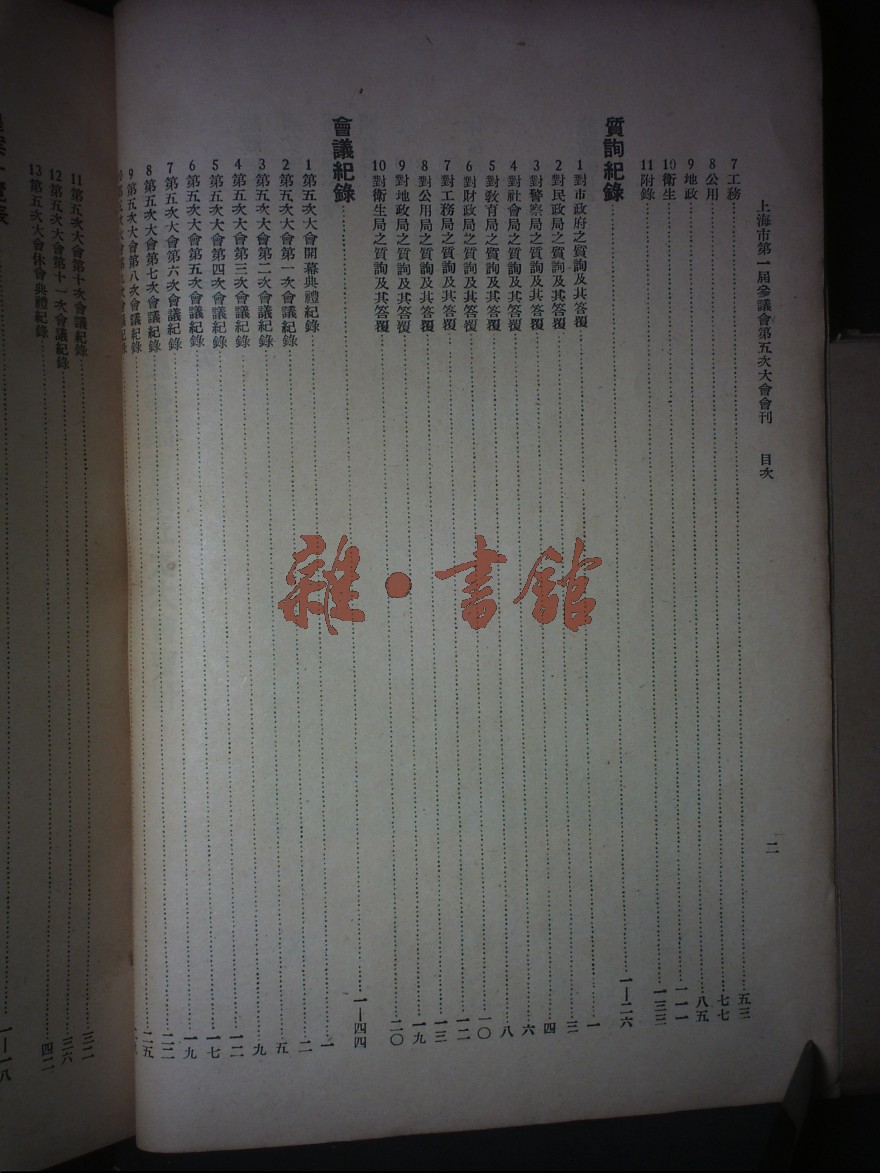 上海市第一屆參議會第五次大會會刊　目次
二
7工務……五三
8公用……七七
9地政……八五
10衛生……一一一
11附錄……一三三
質詢紀錄……一—二六
1對市政府之質詢及其答覆……一
2對民政局之質詢及其答覆……三
3對警察局之質詢及其答覆……四
4對社會局之質詢及其答覆……六
5對教育局之質詢及其答覆……八
6對財政局之質詢及其答覆……一〇
7對工務局之質詢及其答覆……一二
8對公用局之質詢及其答覆……一三
9對地政局之質詢及其答覆……一九
10對衛生局之質詢及其答覆……二〇
會議紀錄……一—四四
1第五次大會開幕典禮紀錄……一
2第五次大會第一次會議紀錄……二
3第五次大會第二次會議紀錄……五
4第五次大會第三次會議紀錄……九
5第五次大會第四次會議紀錄……一二
6第五次大會第五次會議紀錄……一七
7第五次大會第六次會議紀錄……一九
8第五次大會第七次會議紀錄……二二
9第五次大會第八次會議紀錄……二五
10第五次大會第九次會議紀錄
11第五次大會第十次會議紀錄……三二
12第五次大會第十一次會議紀錄……三六
13第五次大會休會典禮紀錄……四二
一覽表……一—一八
雜·書館